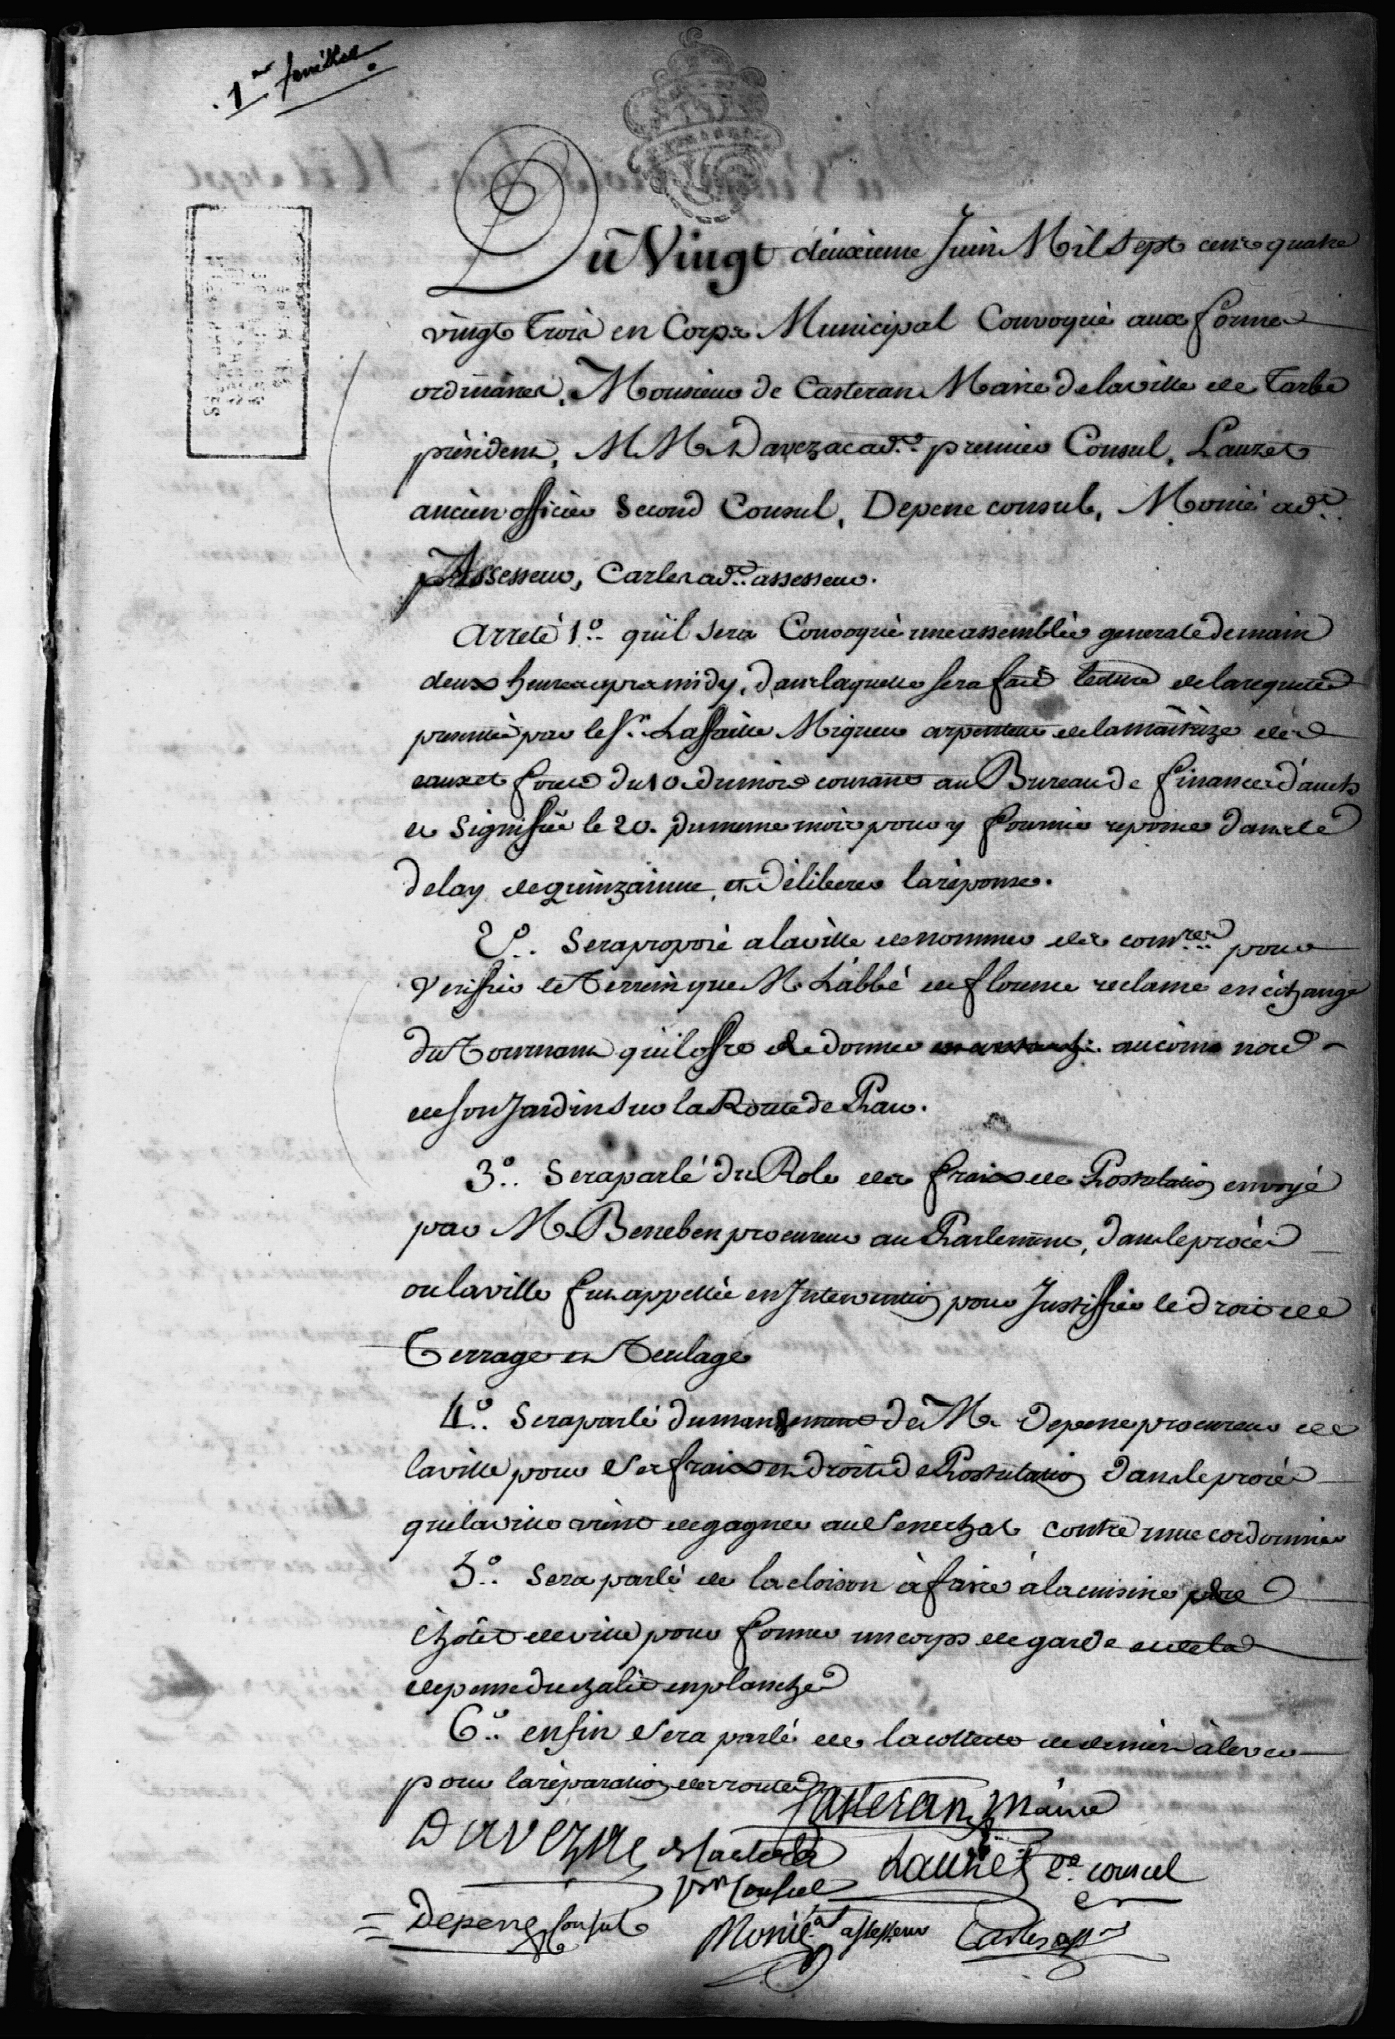 1er feuillet
Du Vingt deuxieme Juin Mil Sept cent quatre
vingt Trois en Corps Municipal Convoqué aux formes
ordinaires, Monsieur de Casteran Maire de la ville de Tarbe
président, M M Davezac adt. premier Consul, Lauzet
ancien officier Second Consul, Depene consul, Monié adt.
Assesseur, Carles adt. assesseur.
Arreté 1o. qu'il sera Convoqué une assemblée generale demain
deux heures apres midy, dans laquelle sera fait lecture de la requette
presentée par le Sr. Lassalle Miqueu arpenteur de la maîtrize des
eaux et forets du 10. du mois courant au Bureau de finances d'auch
et Signifiée le 20. du meme mois pour y fournir reponse dans le
delay de quinzainne, et déliberer la réponse.
2o. Sera proposé a la ville de nommer des comres. pour
Verifier le Terrein que M L'abbé de florence reclame en échange
du Tournant qu'il offre de donner au coin nord
de son Jardin sur la Route de Pau.
3o. Sera parlé du Role des fraix de Postulation envoyé
par M. Beneben procureur au Parlement, dans le procès
ou la ville fut appellée en Intervention pour Justifier le droit de
Terrage et Teulage
4o. Sera parlé du mandement de M. Depene procureur de
la ville pour Ses fraix et droits de Postulation dans le procès
que la ville vient de gagner au Senechal contre un cordonnier
5o. Sera parlé de la cloison à faire à la cuisine de
l'hôtel de ville pour former un corps de garde et de la
depense du chalit en planches
6o. enfin Sera parlé de la collecte de deniers à lever
pour la réparation des routes
Casteran maire
Davezac de Castera
pr. Consul
Lauzet 2e. consul
Depene Consul
Monié at assesseur
Carles assr